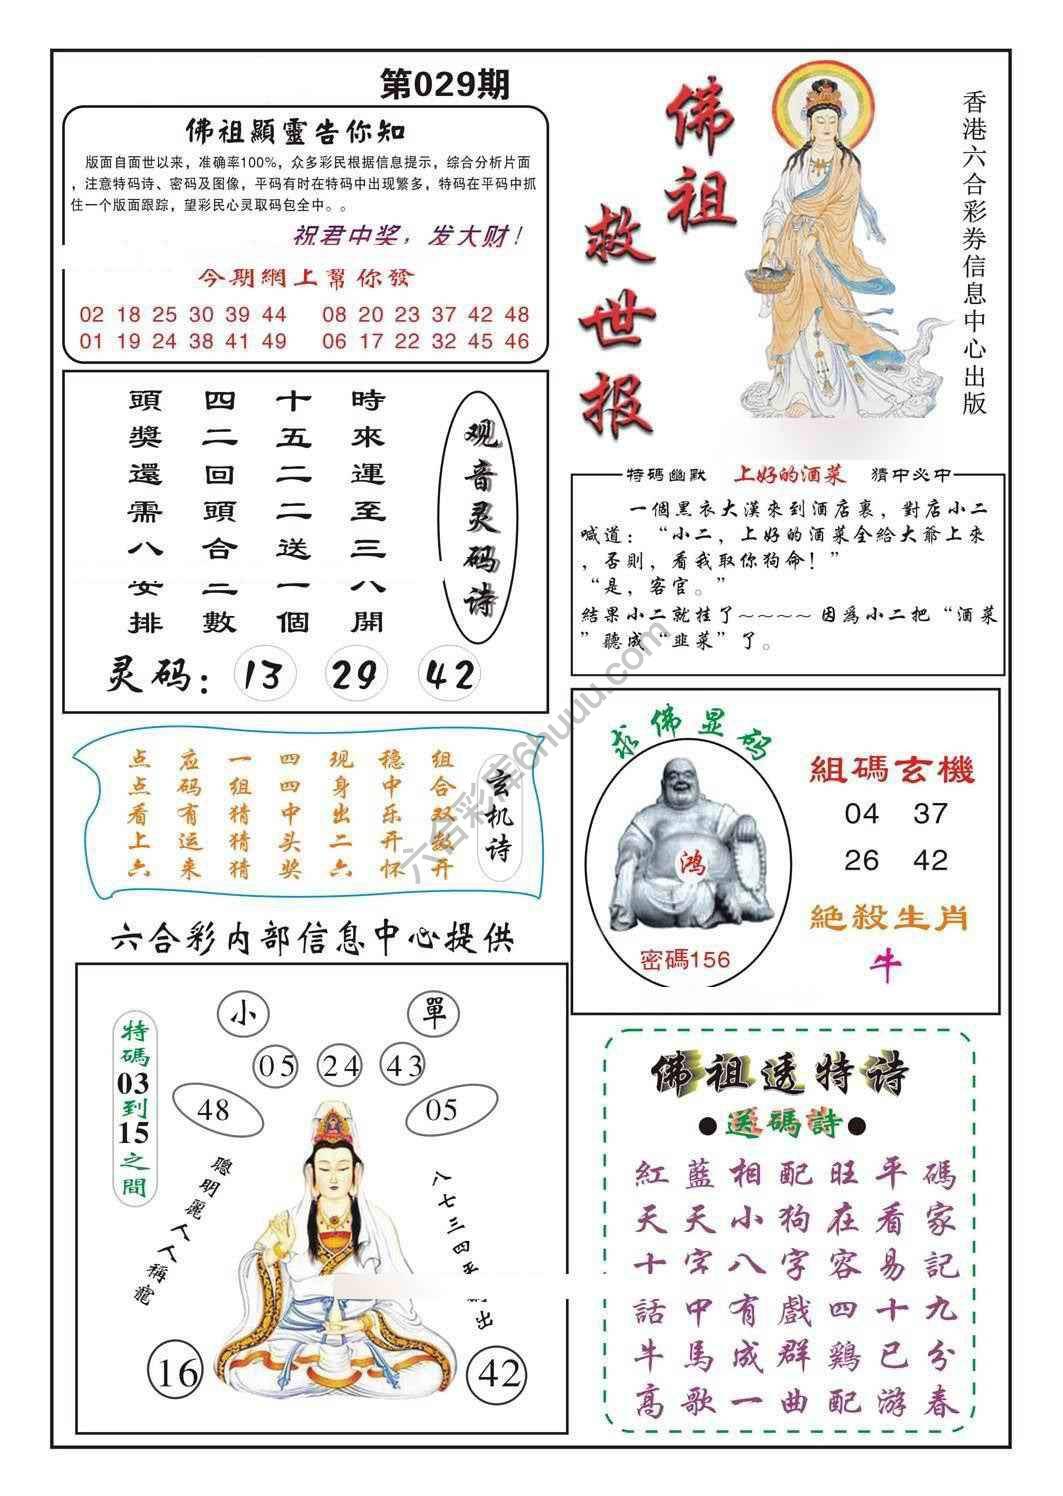 第029期
佛祖顯靈告你知
版面自面世以来，准确率100%，众多彩民根据信息提示，综合分析片面
，注意特码诗、密码及图像，平码有时在特码中出现繁多，特码在平码中抓
住一个版面跟踪，望彩民心灵取码包全中。。
祝君中奖，发大财！
今期網上幫你發
02 18 25 30 39 44 08 20 23 37 42 48
01 19 24 38 41 49 06 17 22 32 45 46
佛祖
救世报
香港六合彩券信息中心出版
观音灵码诗
時來運至三八開
十五二二送一個
四二回頭合二數
頭獎還需八安排
灵码：13 29 42
特碼幽默 上好的酒菜 猜中必中
一個黑衣大漢來到酒店裏，對店小二
喊道：“小二，上好的酒菜全給大爺上來
，否則，看我取你狗命！”
“是，客官。”
結果小二就挂了～～～～因爲小二把“酒菜
”聽成“韭菜”了。
玄机诗
组合双数开
稳中乐开怀
现身出二六
四四中头奖
一组猜猜猜
应码有运来
点点看上六
求佛显码
鸿
密碼156
組碼玄機
04 37
26 42
絕殺生肖
牛
六合彩内部信息中心提供
特碼03到15之間
小 單
05 24 43
48 05
聰明麗人人稱寵
八七三四
出
16 42
佛祖透特诗
●送碼詩●
紅藍相配旺平碼
天天小狗在看家
十字八字容易記
話中有戲四十九
牛馬成群鷄已分
高歌一曲配游春
六合彩库6huuu.com